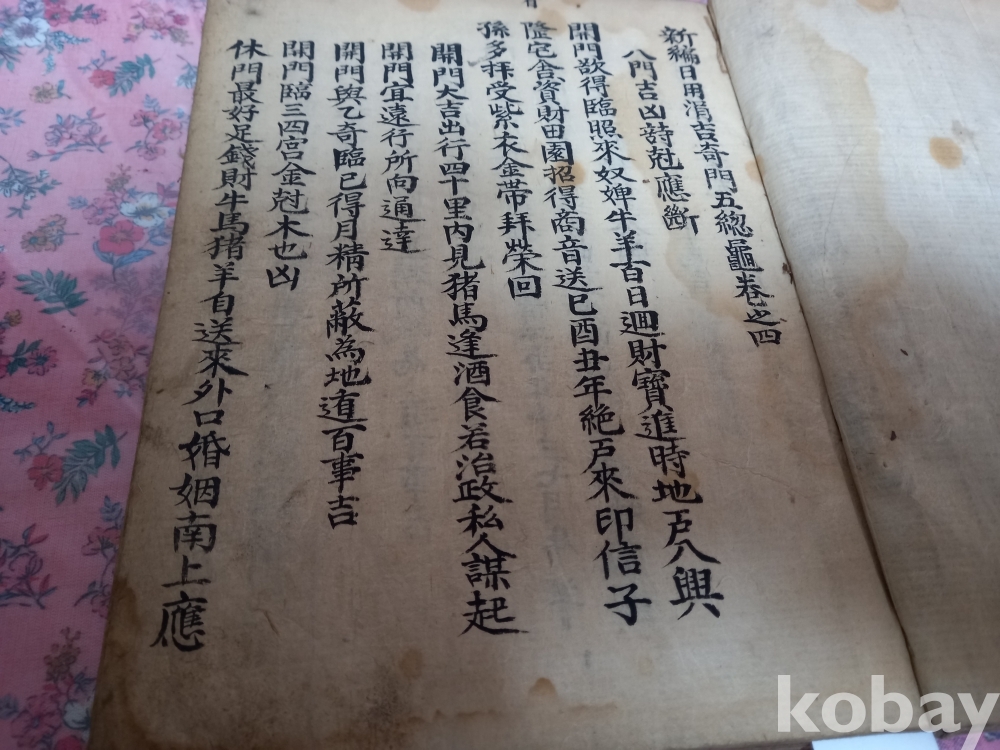 新編日用涓吉奇門五總龜卷之四
八門吉凶詩尅應斷
開門欲得臨照來奴婢牛羊百日迴財寶進時地戶八興
隆宅舍資財田園招得商音送巳酉丑年絶戶來印信子
孫多拜受紫衣金帶拜榮回
開門大吉出行四十里內見猪馬逢酒食若治政私人謀起
開門宜遠行所向通達
開門與乙奇臨已得月精所蔽為地道百事吉
開門臨三四宮金尅木也凶
休門最好足錢財牛馬猪羊自送來外口婚姻南上應
kobay